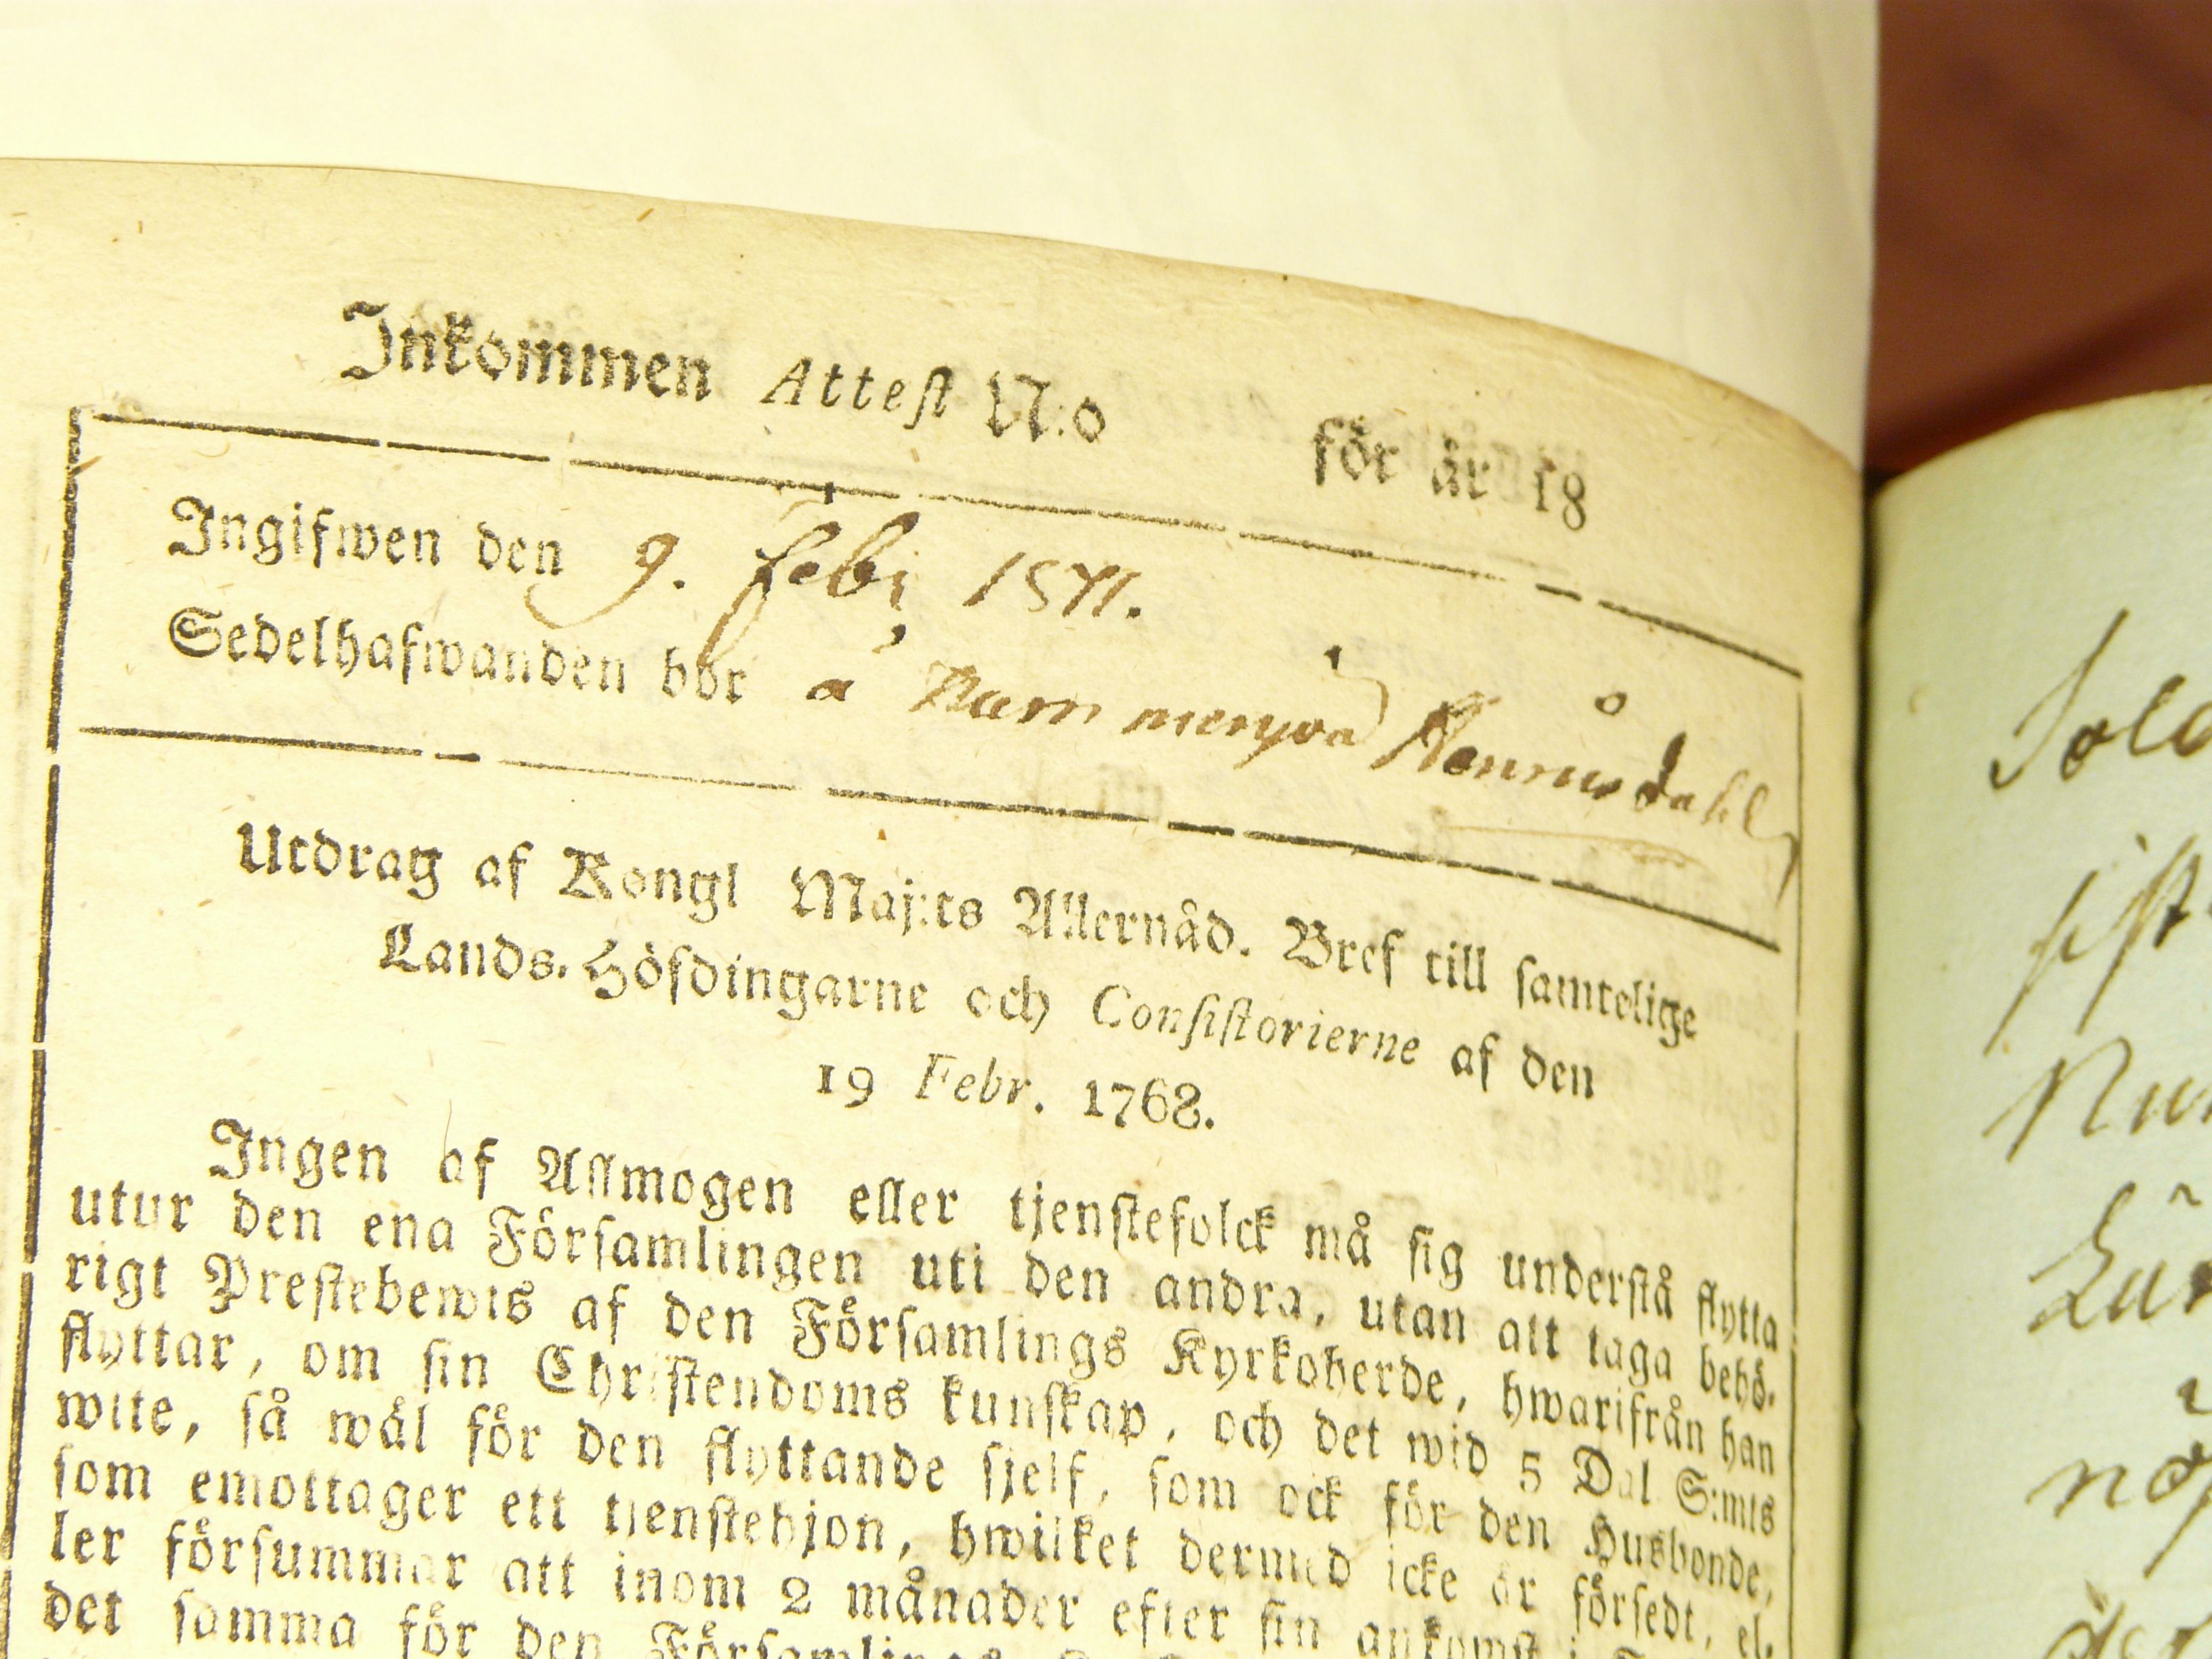 Inkommen Atteſt N:o för år 18
Ingifwen den 9. Feb;
Sedelhafwanden bör å
Utdrag af Kongl Maj:ts Allernåd. Bref till ſamtelige
Lands-Höfdingarne och Conſiſtorierne af den
19 Febr. 1768.
Ingen af Allmogen eller tjenſtefolck må ſig underſtå flytta
utur den ena Förſamlingen uti den andra, utan att taga behö-
rigt Preſtebewis af den Förſamlings Kyrkoherde, hwarifrån han
flyttar, om ſin Chriſtendoms kunſkap, och det wid 5 Dal S:mts
wite, ſå wäl för den flyttande ſjelf, ſom ock för den Husbonde,
ſom emottager ett tjenſtehjon, hwilket dermed icke är förſedt, el-
ler förſummar att inom 2 månader efter ſin ankomſt i
det ſamma för den Förſamlings
Sold
ſiſt